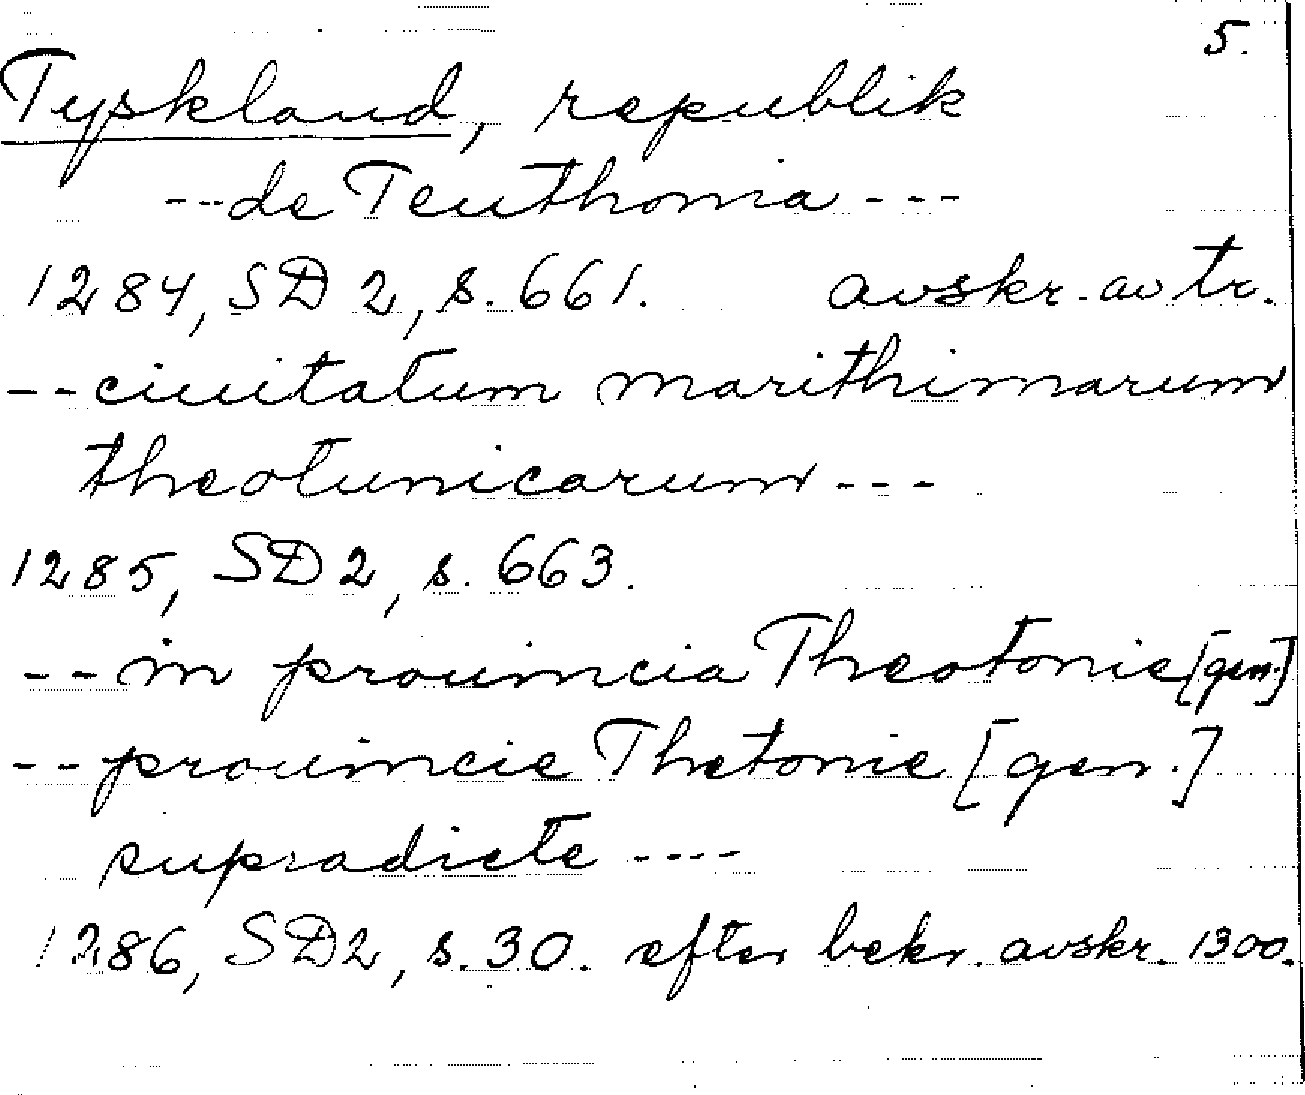 5.
Tyskland, republik
---de Teuthonia---
1284, SD 2, s. 661. avskr. av tr.
--ciuitatum marithimarum
theotunicarum---
1285, SD 2, s. 663.
--in prouincia Theotonie [gen.]
--prouincie Thetonie [gen.]
supradicte----
1286, SD 2, s. 30. efter bekr. avskr. 1300.